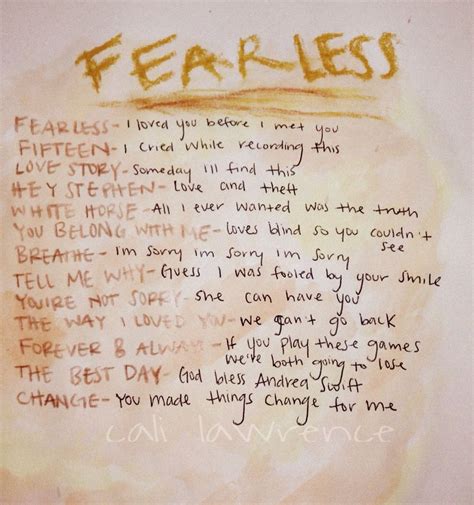 FEARLESS
FEARLESS - I loved you before I met you
FIFTEEN - I cried while recording this
LOVE STORY - Someday I'll find this
HEY STEPHEN - Love and theft
WHITE HORSE - All I ever wanted was the truth
YOU BELONG WITH ME - Loves blind so you couldn't see
BREATHE - I'm sorry im sorry im sorry
TELL ME WHY - Guess I was fooled by your smile
YOU'RE NOT SORRY - She can have you
THE WAY I LOVED YOU - we can't go back
FOREVER & ALWAYS - If you play these games we're both going to lose
THE BEST DAY - God bless Andrea Swift
CHANGE - You made things change for me
cali lawrence